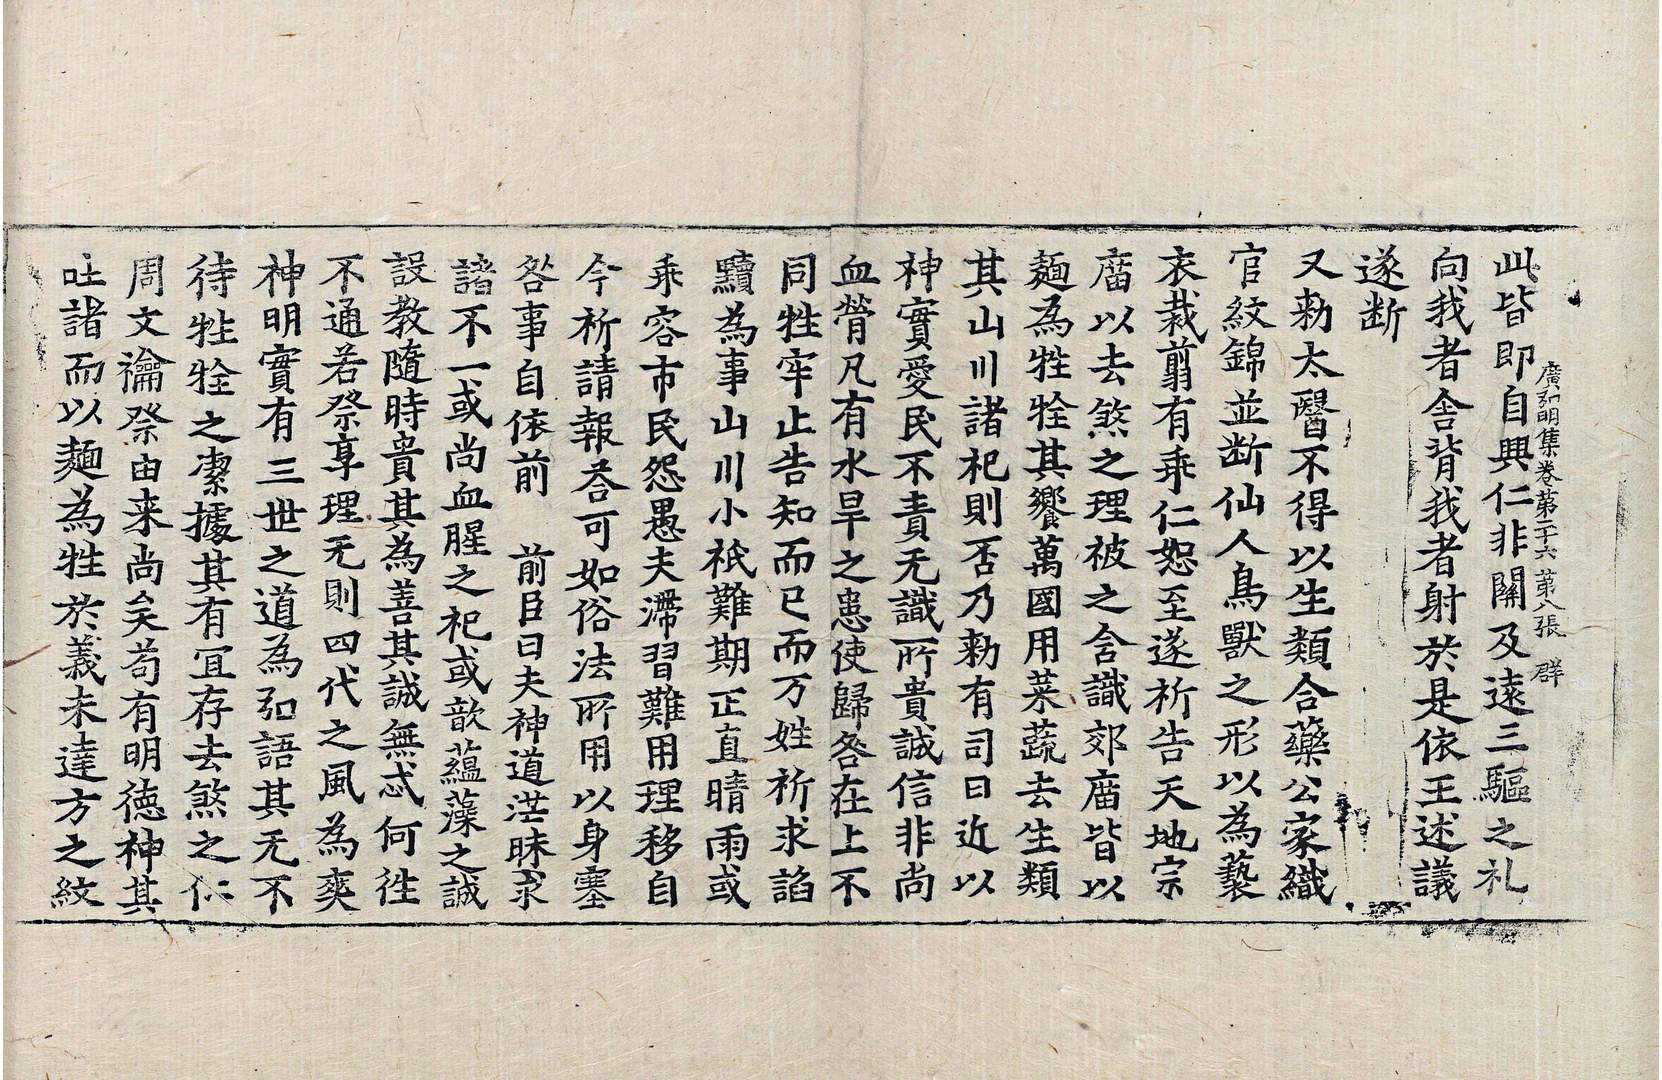 廣弘明集卷第二十六 第八張 群
此皆即自興仁非關及遠三驅之礼
向我者舍背我者射於是依王述議
遂断
又勑太醫不得以生類合藥公家織
官紋錦並断仙人鳥獸之形以為䙝
衣裁翦有乖仁恕至遂祈告天地宗
庿以去煞之理被之含識郊庿皆以
麵為牲牷其饗萬國用菜蔬去生類
其山川諸祀則否乃勑有司曰近以
神實愛民不責无識所貴誠信非尚
血膋凡有水旱之患使歸咎在上不
同牲牢止告知而已而万姓祈求諂
黷為事山川小祇難期正直晴雨或
乖容市民怨愚夫滯習難用理移自
今祈請報荅可如俗法所用以身塞
咎事自依前 前臣曰夫神道茫昧求
諸不一或尚血腥之祀或歆蘊藻之誠
設教隨時貴其為善其誠無忒何徃
不通若祭享理无則四代之風為爽
神明實有三世之道為弘語其无不
待牲牷之潔據其有宜存去煞之仁
周文禴祭由来尚矣苟有明德神其
吐諸而以麵為牲於義未達方之紋